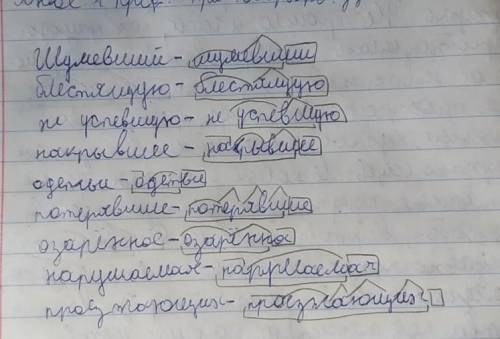 Шумевший - шумевший
блестящую - блестящую
не успевшую - не успевшую
накрывшее - накрывшее
одетые - одетые
потерявшие - потерявшие
озарённое - озарённое
нарушаемая - нарушаемая
проезжающих - проезжающих